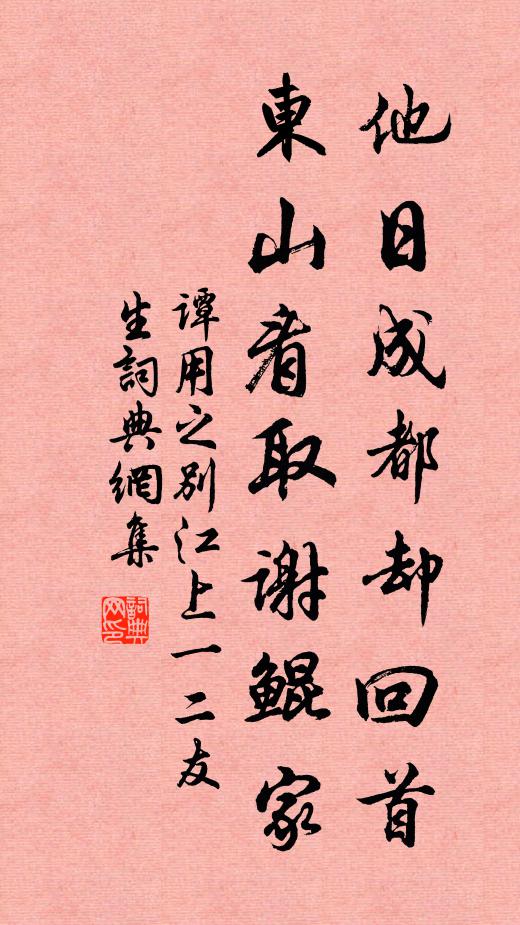 他日成都却回首
東山看取謝鯤家
谭用之别江上一二友
生詞典網集
詞典
网印